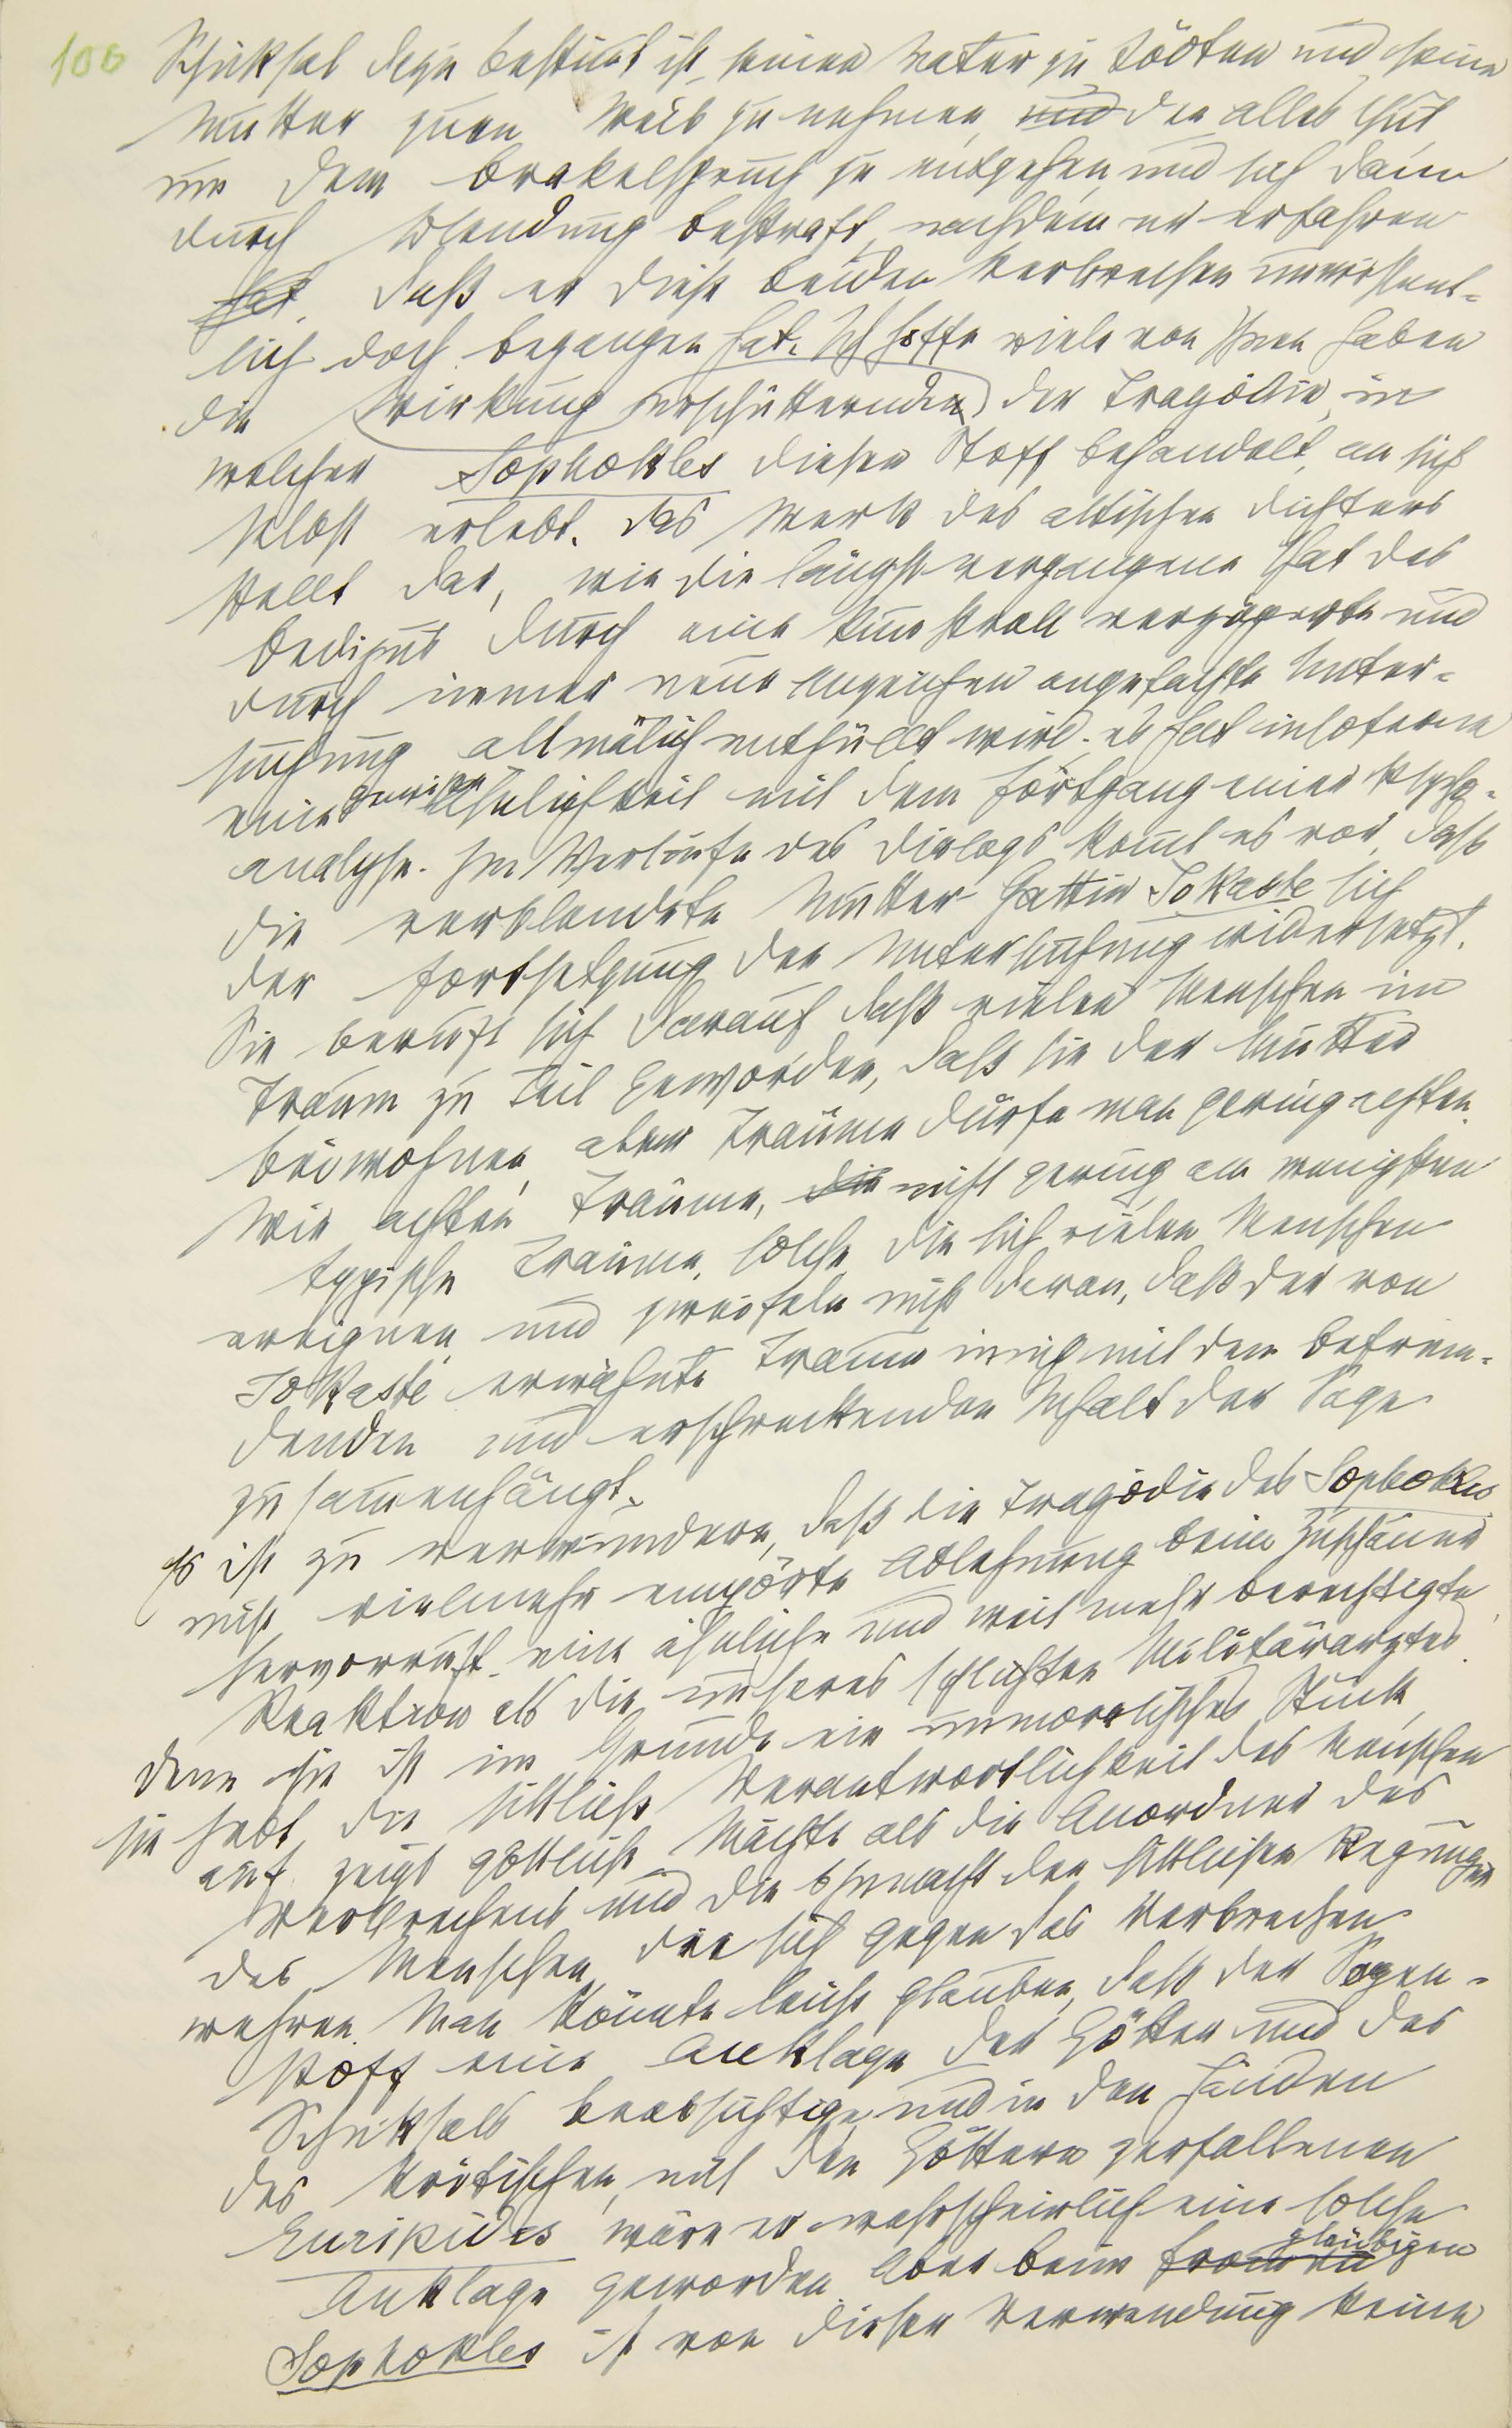 106
Schicksal dazu bestimt ist, seinen Vater zu tödten und seine
Mutter zum Weib zu nehmen, und der alles thut
um dem Orakelspruch zu entgehen und sich dann
durch Blendung bestraft, nachdem er erfahren
hat, daß er diese beiden Verbrechen unwissent-
lich doch begangen hat. Ich hoffe viele von Ihnen haben
die Wirkung erschütternde der Tragödie, in
welcher Sophokles diesen Stoff behandelt, an sich
selbst erlebt. Das Werk des attischen Dichters
stellt dar, wie die längst vergangene That des
Oedipus durch eine kunstvoll verzögerte und
durch immer neue Anzeichen angefachte Unter-
suchung allmälich enthüllt wird. es hat insoferne
eine gewisse Ähnlichkeit mit dem Fortgang einer Psycho-
analyse. Im Verlaufe des Dialogs komt es vor, daß
die verblendete Mutter-Gattin Jokaste sich
der Fortsetzung der Untersuchung widersetzt.
Sie beruft sich darauf, daß vielen Menschen im
Traum zu Teil geworden, daß sie der Mutter
beiwohnen, aber Träume dürfe man gering achten.
Wir achten Träume, die nicht gering am wenigsten
typische Träume, solche die sich vielen Menschen
ereignen und zweifeln nicht daran, daß der von
Jokaste erwähnte Traum innig mit dem befrem-
denden und erschreckenden Inhalt der Sage
zusammenhängt.
Es ist zu verwundern, daß die Tragödie des Sophokles
nicht vielmehr empörte Ablehnung beim Zuschauer
hervorruft, eine ähnliche und weit mehr berechtigte
Reaktion als die unseres schlichten Militärarztes.
denn sie ist im Grunde ein unmoralisches Stück,
sie hebt die sittliche Verantwortlichkeit des Menschen
auf, zeigt göttliche Mächte als die Anordner des
Verbrechens und die Ohnmacht der sittlichen Regungen
des Menschen, die sich gegen das Verbrechen
wehren. Man könnte leicht glauben, daß der Sagen-
stoff eine Anklage der Götter und des
Schicksals beabsichtige, und in den Händen
des kritischen, mit den Göttern zerfallenen
Euripides wäre es wahrscheinlich eine solche
Anklage geworden. Aber beim frommen gläubigen
Sophokles ist von dieser Verwendung keine